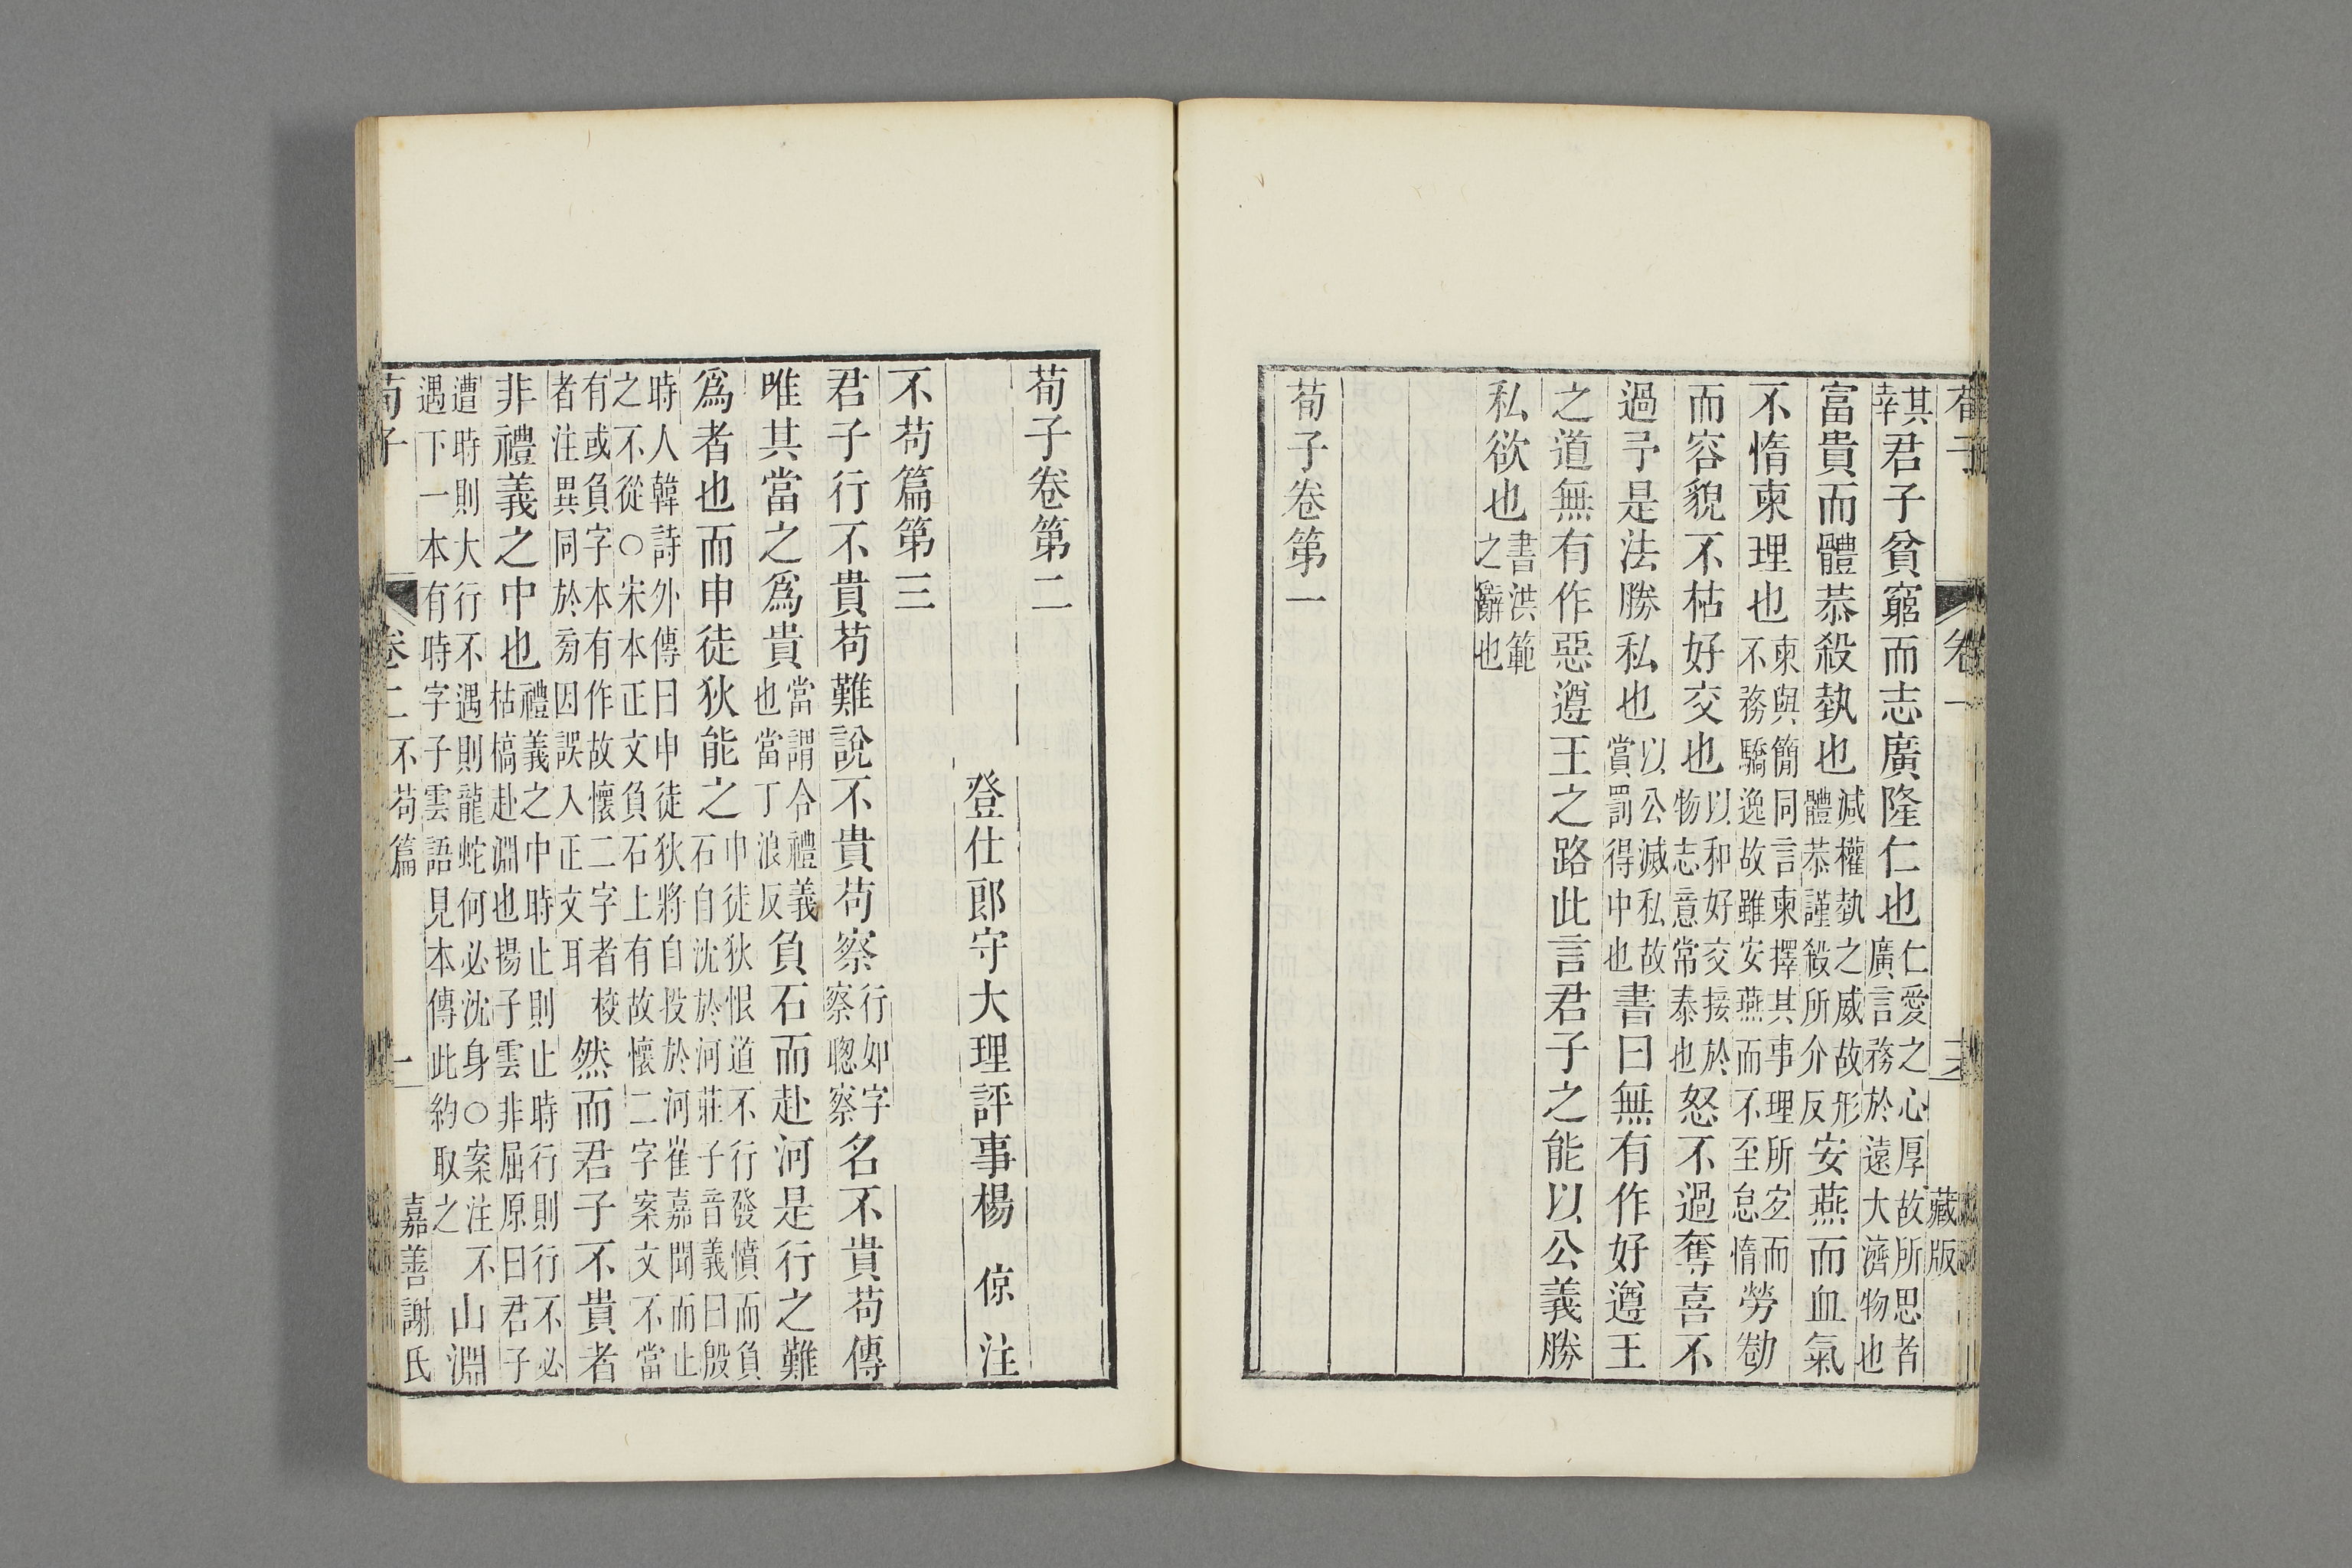 荀子 卷一 藏版
其幸君子貧窮而志廣隆仁也仁愛之心厚故所思者廣言務於遠大濟物也
富貴而體恭殺埶也減權埶之威故形體恭謹殺所介反安燕而血氣
不惰柬理也柬與簡同言柬擇其事理所宜而不務驕逸故雖安燕而不至怠惰勞勌
而容貌不枯好交也以和好交接於物志意常泰也怒不過奪喜不
過予是法勝私也以公滅私故賞罰得中也書曰無有作好遵王
之道無有作惡遵王之路此言君子之能以公義勝
私欲也書洪範之辭也
荀子卷第一
荀子卷第二
登仕郎守大理評事楊 倞 注
不苟篇第三
君子行不貴苟難說不貴苟察行如字察聰察名不貴苟傳
唯其當之爲貴當謂合禮義也當丁浪反負石而赴河是行之難
爲者也而申徒狄能之申徒狄恨道不行發憤而負石自沈於河莊子音義曰殷
時人韓詩外傳曰申徒狄將自投於河崔嘉聞而止之不從○宋本正文負石上有故懷二字案文不當
有或負字本有作故懷二字者校者注異同於旁因誤入正文耳然而君子不貴者
非禮義之中也禮義之中時止則止時行則行不必枯槁赴淵也揚子雲非屈原曰君子
遭時則大行不遇則龍蛇何必沈身○案注不遇下一本有時字子雲語見本傳此約取之山淵
荀子 卷二不苟篇 一 嘉善謝氏